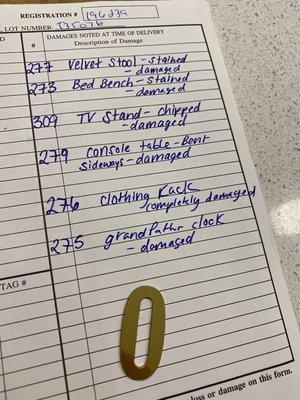 REGISTRATION # 196239
LOT NUMBER: 135076
# DAMAGES NOTED AT TIME OF DELIVERY
Description of Damage
277 Velvet Stool - stained
- damaged
273 Bed Bench - stained
- damaged
309 TV Stand - chipped
- damaged
279 console table - Bent
sideways - damaged
276 clothing Rack
- completely damaged
275 grandfathr clock
- damaged
TAG #
0
loss or damage on this form.